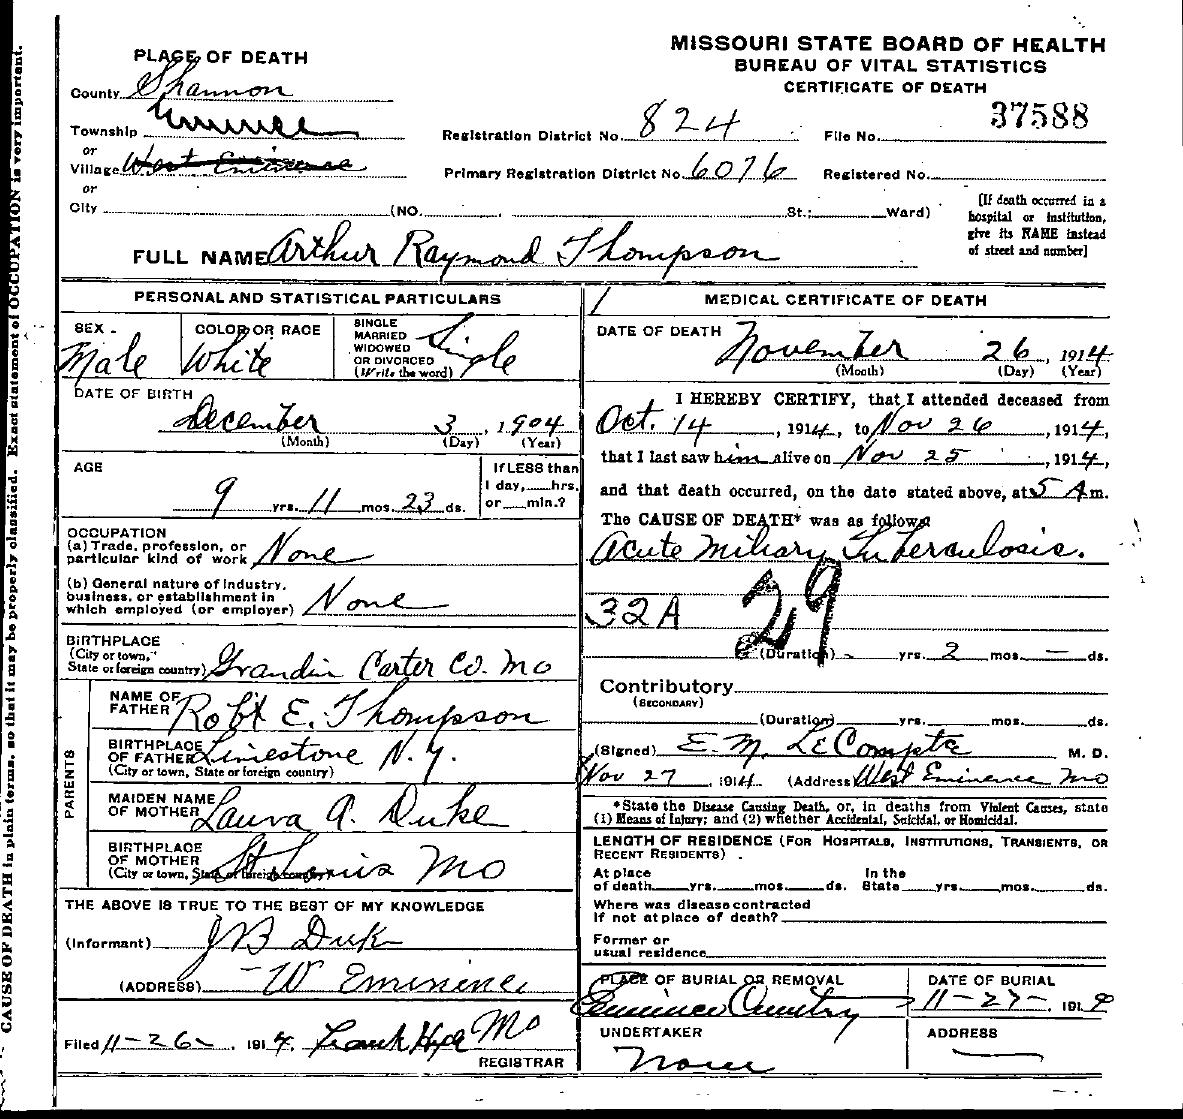 MISSOURI STATE BOARD OF HEALTH
BUREAU OF VITAL STATISTICS
CERTIFICATE OF DEATH
PLACE OF DEATH
County Shannon
Township Eminence
or
Village West Eminence
or
City (NO. St.; Ward)
Registration District No. 824
File No. 37588
Primary Registration District No. 6076
Registered No.
[If death occurred in a
hospital or institution,
give its NAME instead
of street and number]
FULL NAME Arthur Raymond Thompson
PERSONAL AND STATISTICAL PARTICULARS
SEX Male
COLOR OR RACE White
SINGLE
MARRIED
WIDOWED
OR DIVORCED
(Write the word) Single
DATE OF BIRTH
December 3, 1904
(Month) (Day) (Year)
AGE
9 yrs. 11 mos. 23 ds.
If LESS than
1 day, hrs.
or min.?
OCCUPATION
(a) Trade, profession, or
particular kind of work None
(b) General nature of industry,
business, or establishment in
which employed (or employer) None
BIRTHPLACE
(City or town,
State or foreign country) Grandin Carter Co. Mo
PARENTS
NAME OF
FATHER Robt E. Thompson
BIRTHPLACE
OF FATHER Limestone N.Y.
(City or town, State or foreign country)
MAIDEN NAME
OF MOTHER Laura A. Duke
BIRTHPLACE
OF MOTHER St Louis Mo
(City or town, State or foreign country)
THE ABOVE IS TRUE TO THE BEST OF MY KNOWLEDGE
(Informant) J B Duke
(ADDRESS) W Eminence
Mo
Filed 11-26-, 1914. Frank Hyde
REGISTRAR
MEDICAL CERTIFICATE OF DEATH
DATE OF DEATH November 26, 1914
(Month) (Day) (Year)
I HEREBY CERTIFY, that I attended deceased from
Oct. 14, 1914, to Nov 26, 1914,
that I last saw him alive on Nov 25, 1914,
and that death occurred, on the date stated above, at 5 A m.
The CAUSE OF DEATH* was as follows
Acute Miliary Tuberculosis.
32A 29
(Duration) - yrs. 2 mos. - ds.
Contributory
(SECONDARY)
(Duration) yrs. mos. ds.
(Signed) E. M. LeCompte M. D.
Nov 27, 1914 (Address) West Eminence Mo
*State the Disease Causing Death, or, in deaths from Violent Causes, state
(1) Means of Injury; and (2) whether Accidental, Suicidal, or Homicidal.
LENGTH OF RESIDENCE (FOR HOSPITALS, INSTITUTIONS, TRANSIENTS, OR
RECENT RESIDENTS).
At place
of death yrs. mos. ds.
In the
State yrs. mos. ds.
Where was disease contracted
if not at place of death?
Former or
usual residence
PLACE OF BURIAL OR REMOVAL
DATE OF BURIAL
11-27-, 1914
UNDERTAKER
None
ADDRESS
CAUSE OF DEATH in plain terms, so that it may be properly classified. Exact statement of OCCUPATION is very important.